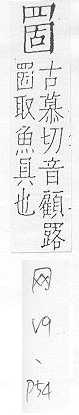 䍛
古慕切音顧
䍛取魚具也
网
V9
、
P54